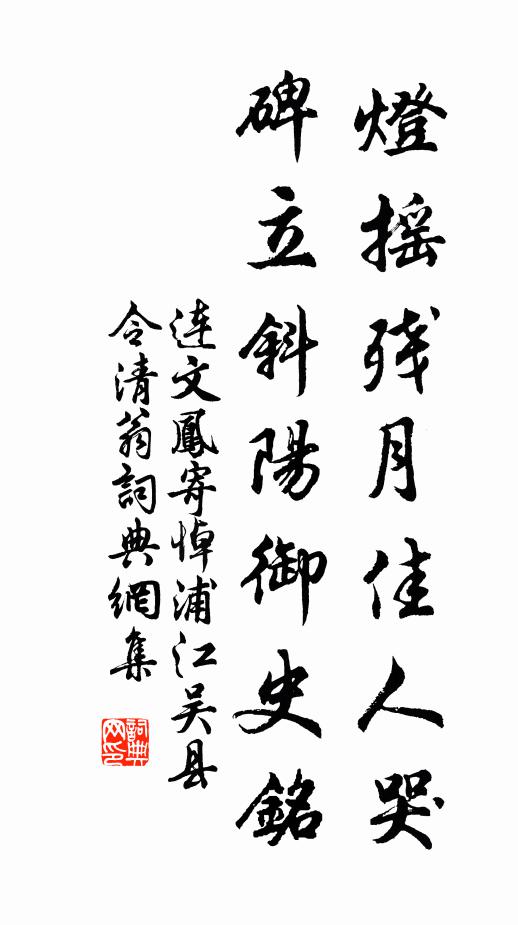 燈摇残月佳人哭
碑立斜陽御史銘
连文鳳寄悼浦江吴县
令清翁詞典網集
詞典
网印